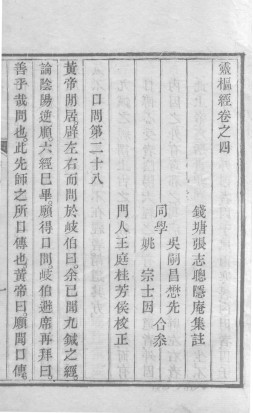 靈樞經卷之四
錢塘張志聰隱庵集註
同學
吳嗣昌懋先
姚宗士因
合叅
門人王庭桂芳侯校正
口問第二十八
黃帝閒居辟左右而問於岐伯曰余已聞九鍼之經
論陰陽逆順六經已畢願得口問岐伯避席再拜曰
善乎哉問也此先師之所口傳也黃帝曰願聞口傳